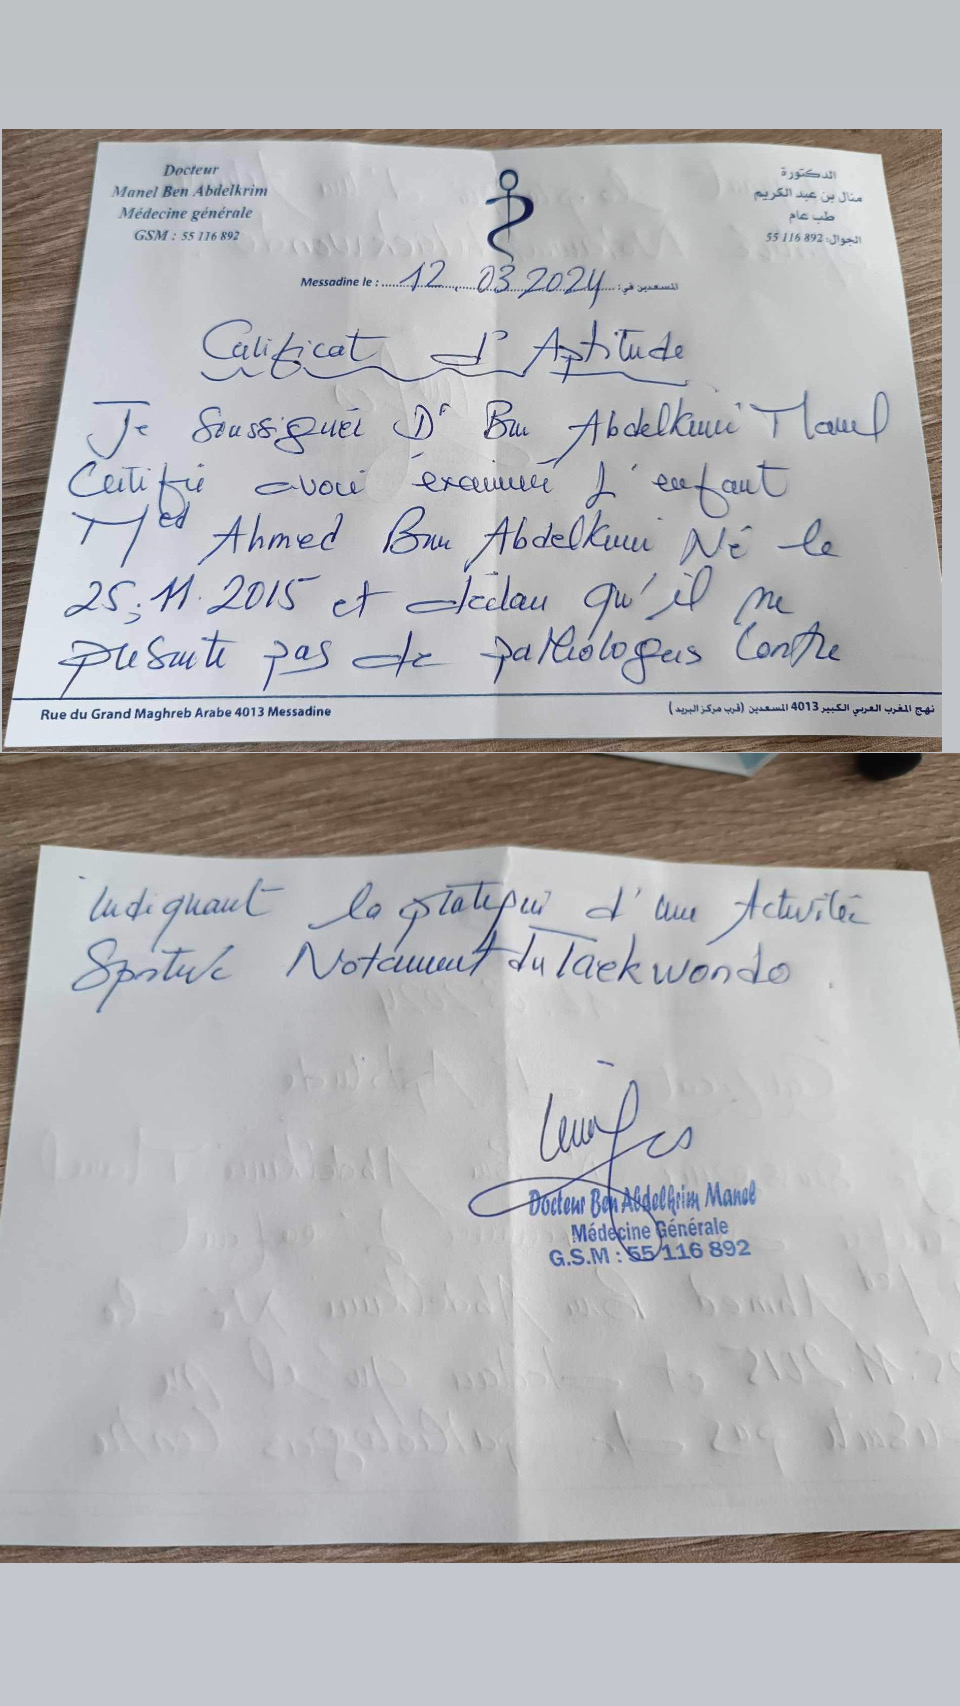 Docteur
Manel Ben Abdelkrim
Médecine générale
GSM : 55 116 892
الدكتورة
منال بن عبد الكريم
طب عام
الجوال: 892 116 55
Messadine le : 12.03.2024 المسعدين في:
Certificat d'Aptitude
Je Soussignéé Dr Ben Abdelkrim Manel
Certifie avoir éxaminé l'enfant
Med Ahmed Ben Abdelkrim Né le
25.11.2015 et déclare qu'il ne
présente pas de pathologies Contre
Rue du Grand Maghreb Arabe 4013 Messadine
نهج المغرب العربي الكبير 4013 المسعدين (قرب مركز البريد)
indiquant la pratique d'une Activitée
Sportive Notament du Taekwondo.
Docteur Ben Abdelkrim Manel
Médecine Générale
G.S.M : 55 116 892